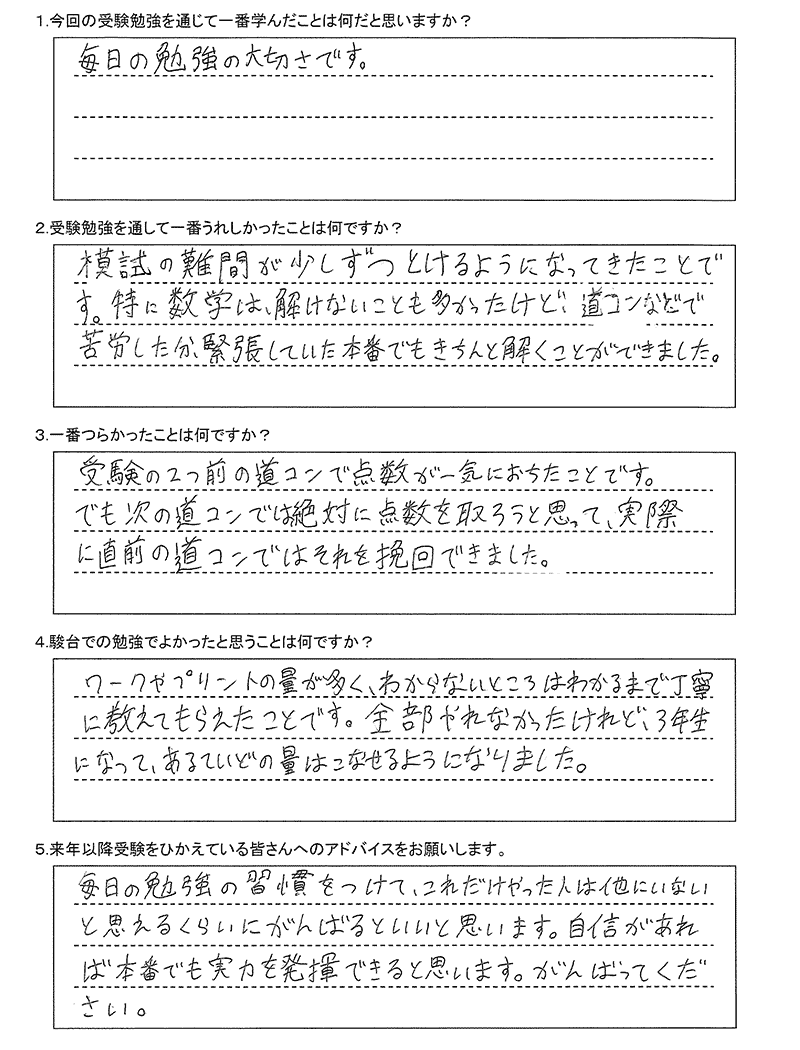 1.今回の受験勉強を通じて一番学んだことは何だと思いますか？
毎日の勉強の大切さです。
2.受験勉強を通して一番うれしかったことは何ですか？
模試の難問が少しずつとけるようになってきたことで
す。特に数学は、解けないことも多かったけど、道コンなどで
苦労した分、緊張していた本番でもきちんと解くことができました。
3.一番つらかったことは何ですか？
受験の2つ前の道コンで点数が一気におちたことです。
でも次の道コンでは絶対に点数を取ろうと思って、実際
に直前の道コンではそれを挽回できました。
4.駿台での勉強でよかったと思うことは何ですか？
ワークやプリントの量が多く、わからないところはわかるまで丁寧
に教えてもらえたことです。全部やれなかったけれど、3年生
になって、あるていどの量はこなせるようになりました。
5.来年以降受験をひかえている皆さんへのアドバイスをお願いします。
毎日の勉強の習慣をつけて、これだけやった人は他にいない
と思えるくらいにがんばるといいと思います。自信があれ
ば本番でも実力を発揮できると思います。がんばってくだ
さい。